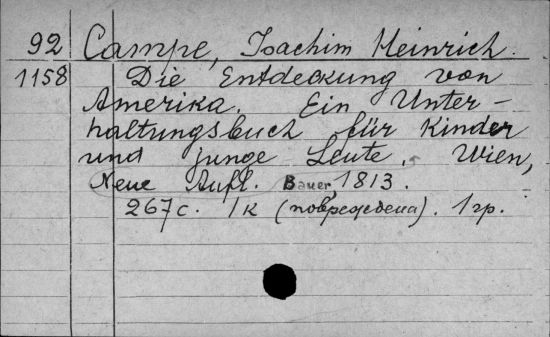 92 Campe, Joachim Heinrich.
1158 Die Entdeckung von
Amerika. Ein Unter-
haltungsbuch für Kinder
und junge Leute. Wien,
Neue Aufl. Bauer, 1813.
267с. 1к (повреждена). 1гр.